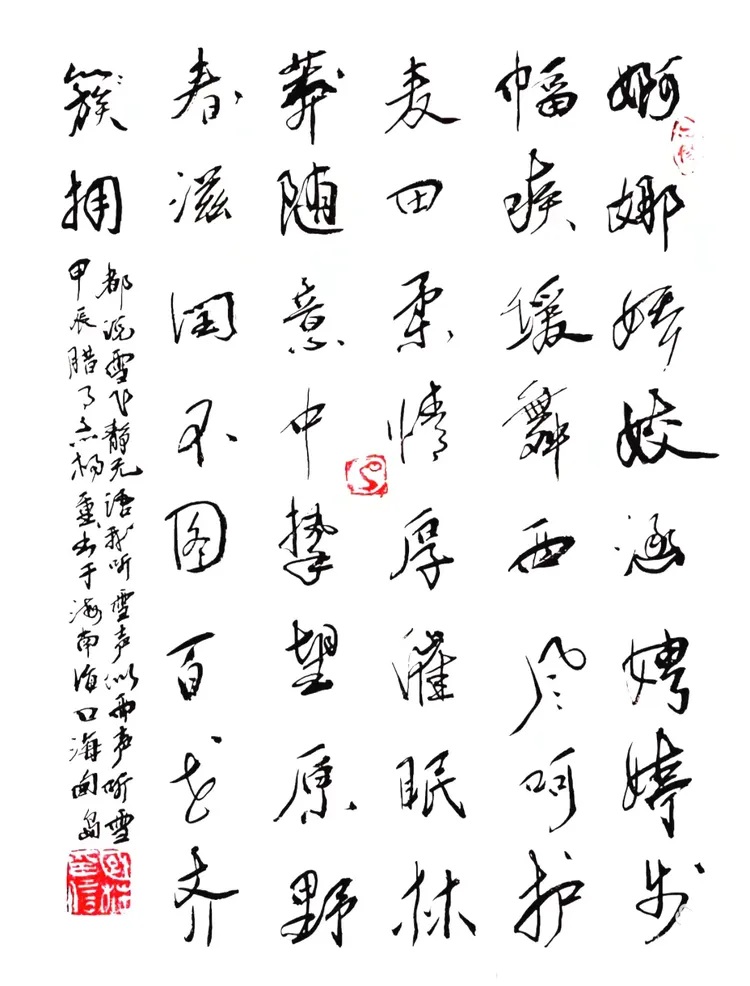 婀娜娇姣涵娉婷步
幅疾缓舞西风呵护
麦田柔情厚催眠林
莽随意中挚望原野
春滋润不图百花齐
簇拥
都说雪飞静无语我听雪声似雨声听雪
甲辰腊月杨重书于海南海口海甸岛